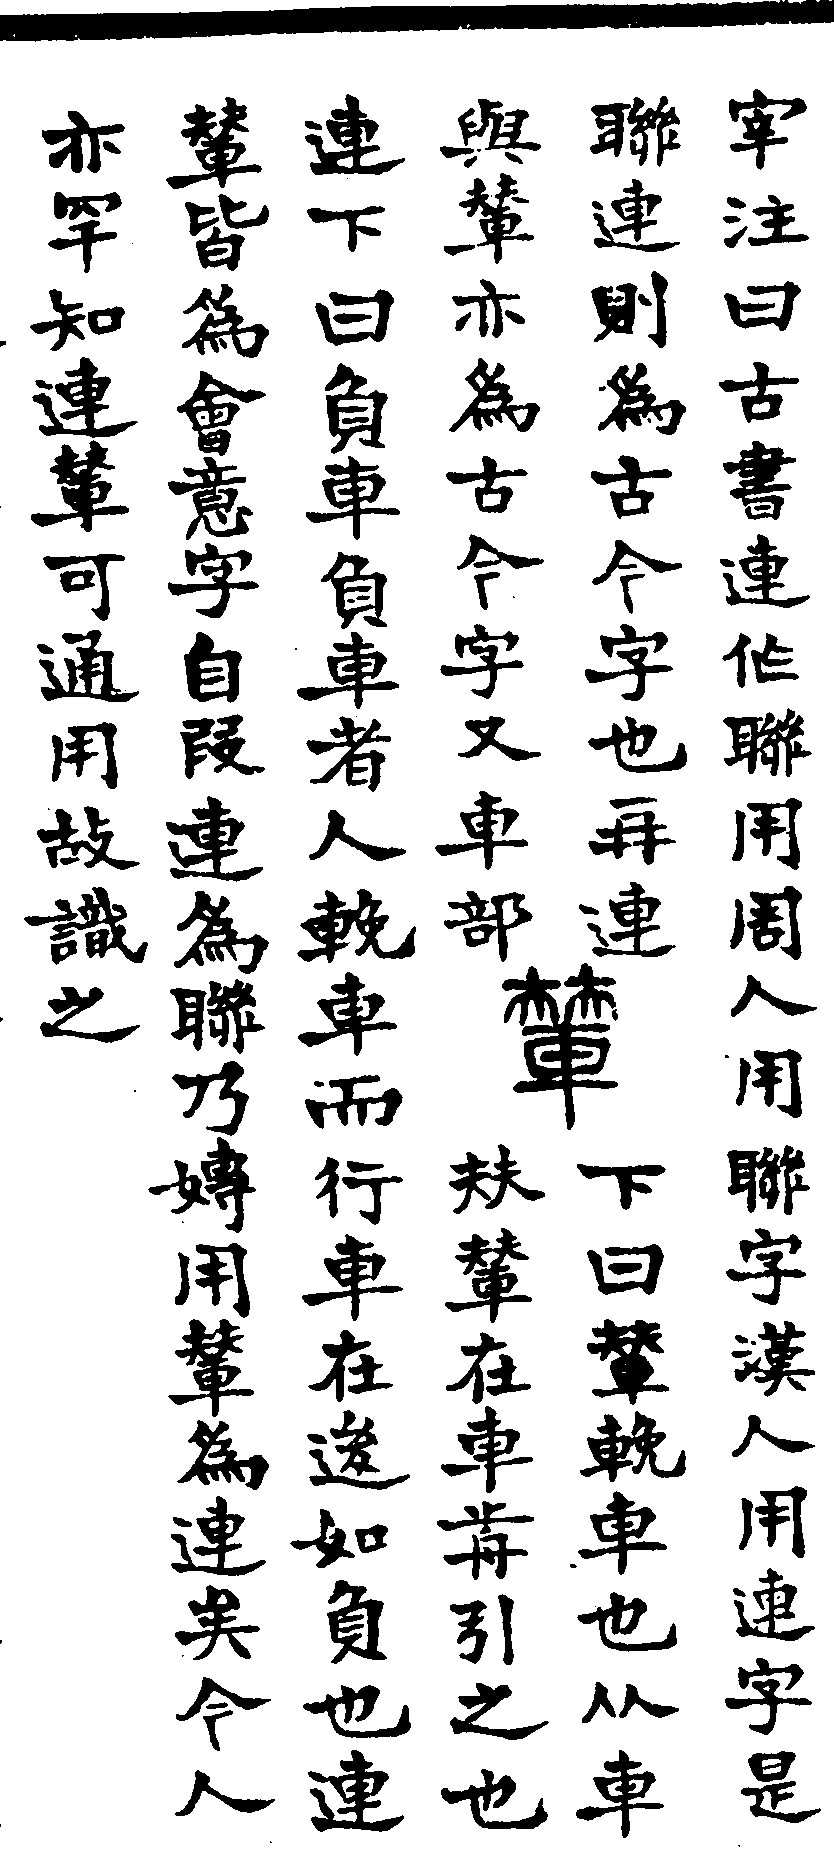 宰注曰古書連作聯用周人用聯字漢人用連字是
聯連則爲古今字也再連
與輦亦爲古今字又車部
輦
下曰輦輓車也从車
㚘輦在車歬引之也
連下曰負車負車者人輓車而行車在後如負也連
輦皆爲會意字自叚連爲聯乃嫥用輦爲連矣今人
亦罕知連輦可通用故識之